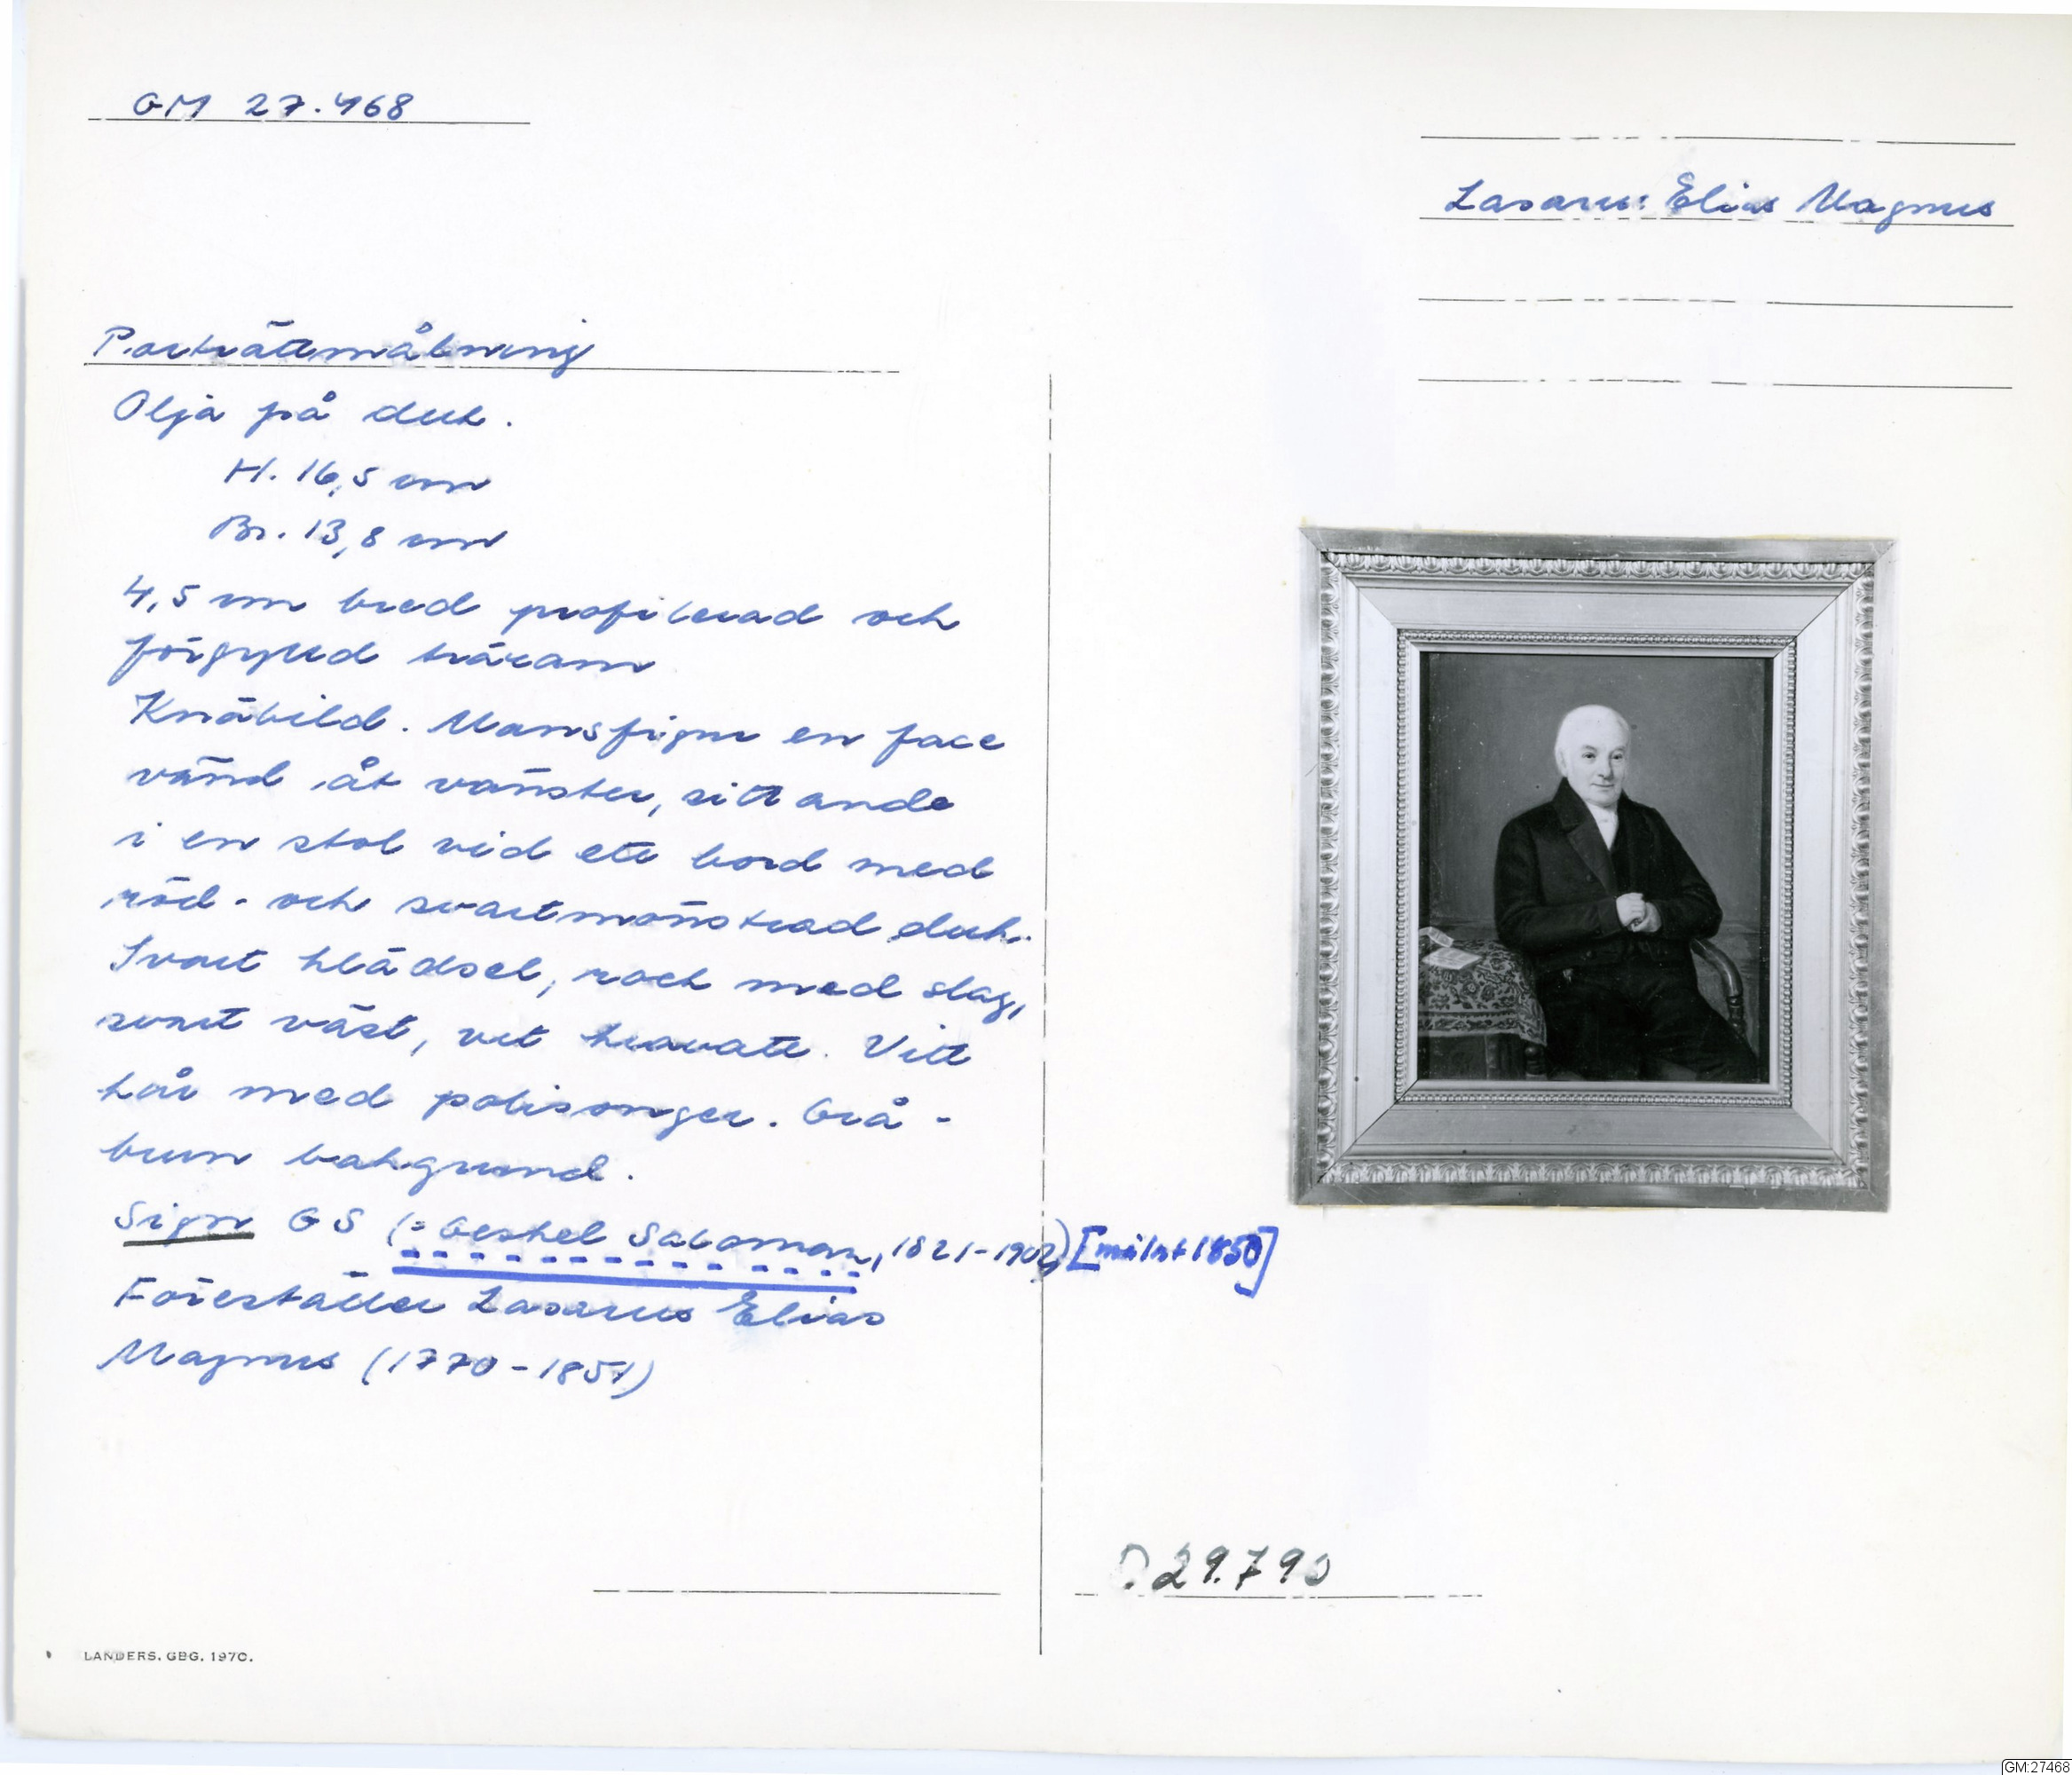 GM 27.468
Lasarus Elias Magnus
Porträttmålning
Olja på duk.
H. 16,5 cm
Br. 13,8 cm
4,5 cm bred profilerad och
förgylld träram
Knäbild. Mansfigur en face
vänd åt vänster, sittande
i en stol vid ett bord med
röd- och svartmönstrad duk.
Svart klädsel, rock med slag,
svart väst, vit kravatt. Vitt
hår med polisonger. Grå-
brun bakgrund.
Sign GS (= Geskel Saloman, 1821-1902) [målat 1850]
Föreställer Lasarus Elias
Magnus (1770-1851)
D.29.790
LANDERS. GBG. 1970.
GM:27468